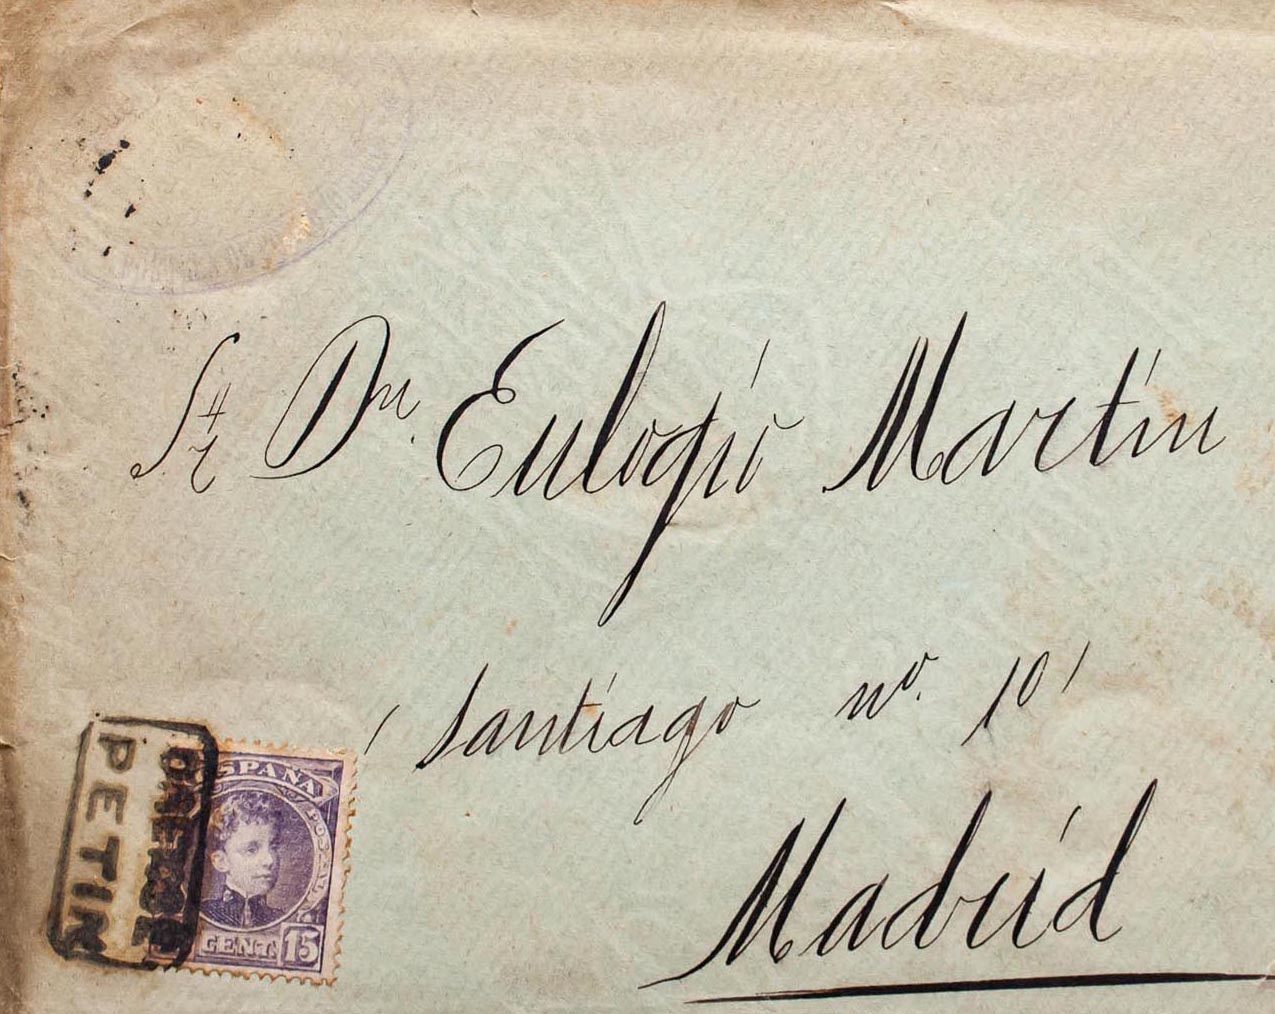 Sr Dn. Eulogio Martin
Santiago nº. 10
Madrid
PETIN
ESPAÑA
CENT. 15